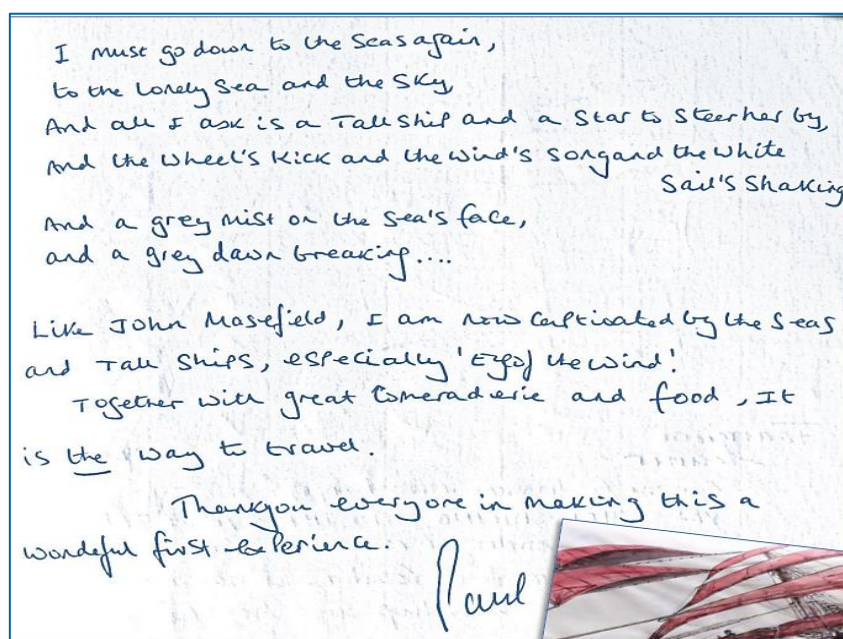 I must go down to the Seas again,
to the Lonely Sea and the Sky,
And all I ask is a Tall Ship and a Star to Steer her by,
And the Wheel's Kick and the Wind's Song and the White
Sail's Shaking
And a grey mist on the Sea's face,
and a grey dawn breaking....
Like John Masefield, I am now Captivated by the Seas
and Tall Ships, especially 'Eye of the Wind'.
Together with great Comeraderie and food, It
is the way to travel.
Thankyou everyone in making this a
wondeful first experience.
Paul